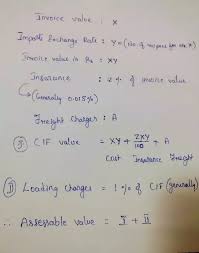 Invoice value : X
Imports Exchange Rate : Y = (No. of rupees for
Invoice value in Rs = XY
Insurance : Z % of invoice value
(Generally 0.015%)
Freight Charges : A
I CIF value = XY + ZXY/100 + A
Cost Insurance Freight
II Loading charges = 1 % of CIF (generally)
∴ Assessable value = I + II